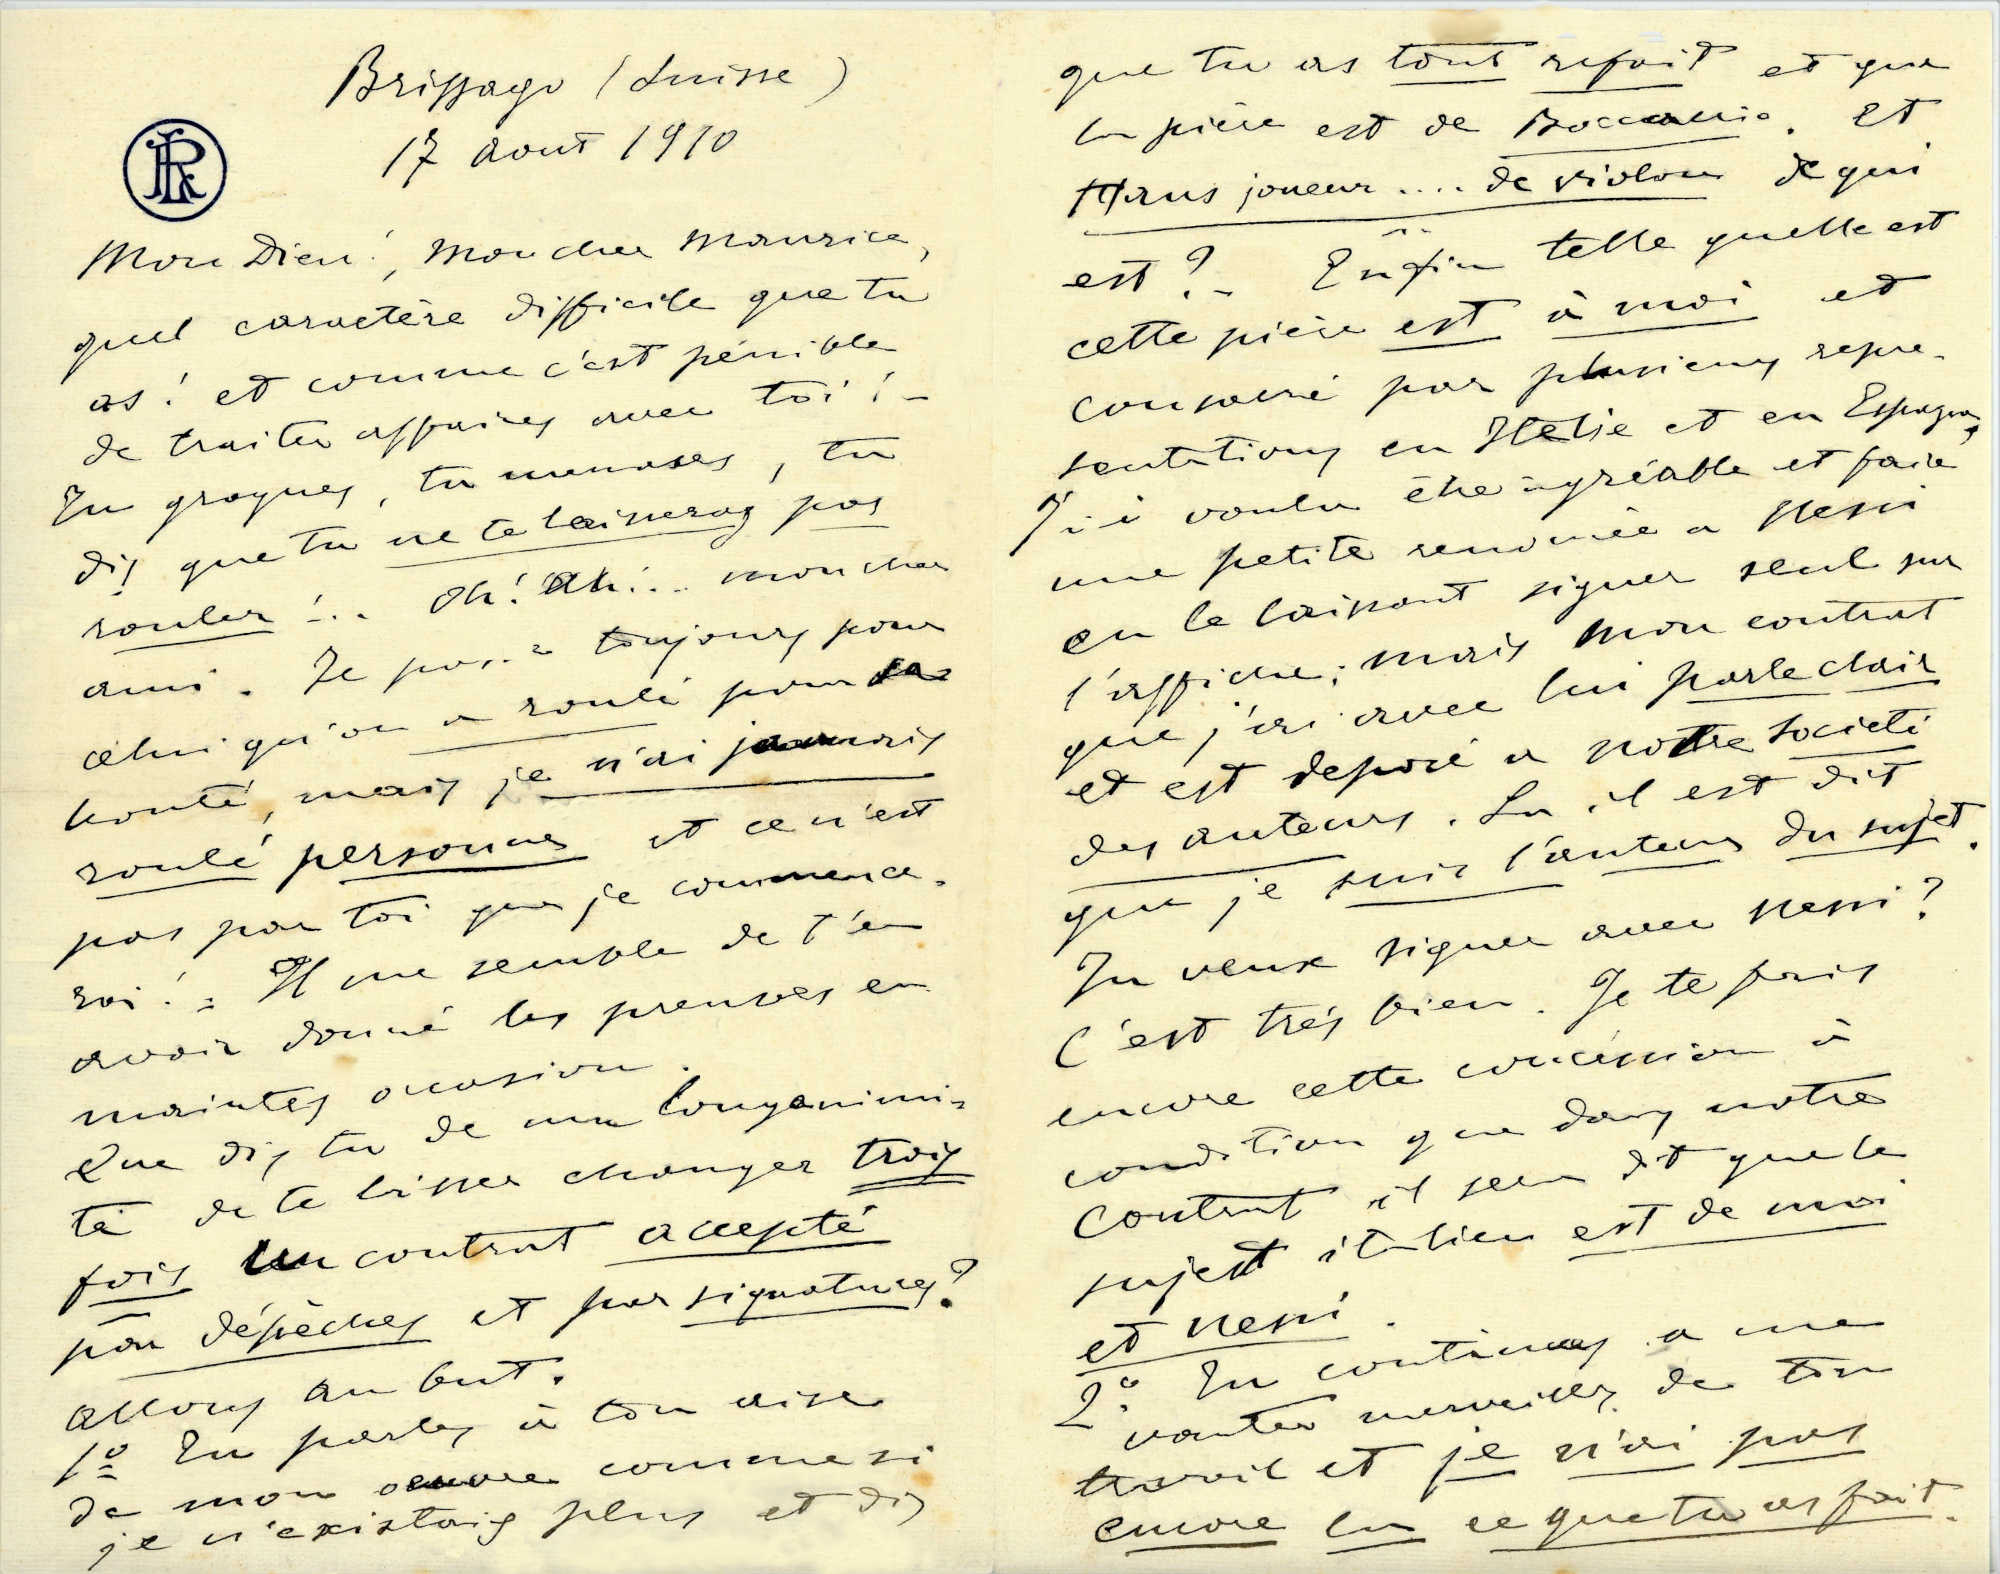 Brissago (Suisse)
17 aout 1910
RL
Mon Dieu!, Mon cher Maurice,
quel caractère difficile que tu
as! et comme c'est pénible
de traiter affaires avec toi!-
Tu grognes, tu menases, tu
dis que tu ne te laisseras pas
rouler!.. Oh! Ah!... mon cher
ami. Je passe toujours pour
celui qu'on a roulé pour sa
bonté, mais je n'ai jamais
roulé personne et ce n'est
pas par toi que je commence-
rai! = Il me semble de t'en
avoir donné les preuves en
maintes occasion.
Que dis tu de ma longanimi-
té de te laisser changer trois
fois un contrat accepté
par dépèches et par signatures?
Allons au but.
1º Tu parles à ton aise
de mon œuvre comme si
je n'existais plus et dis
que tu as tout refait et que
la pièce est de Boccacio. Et
Hans joueur .... de violon de qui
est?- Enfin telle quelle est
cette pièce est à moi et
consacré par plusieurs repre-
sentations en Italie et en Espagne,
J'ai voulu être agréable et faire
une petite renomée a Nessi
en le laissant signer seul sur
l'affiche; mais mon contrat
que j'ai avec lui parle clair
et est deposé a notre Societé
des auteurs. La il est dit
que je suis l'auteur du sujet.
Tu veux signer avec Nessi?
C'est trés bien. Je te fais
encore cette concession à
condition que dans notre
contrat il sera dit que le
sujet italien est de moi
et Nessi.
2º Tu continues a me
vanter merveilles de ton
travail et je n'ai pas
encore lu ce que tu as fait.